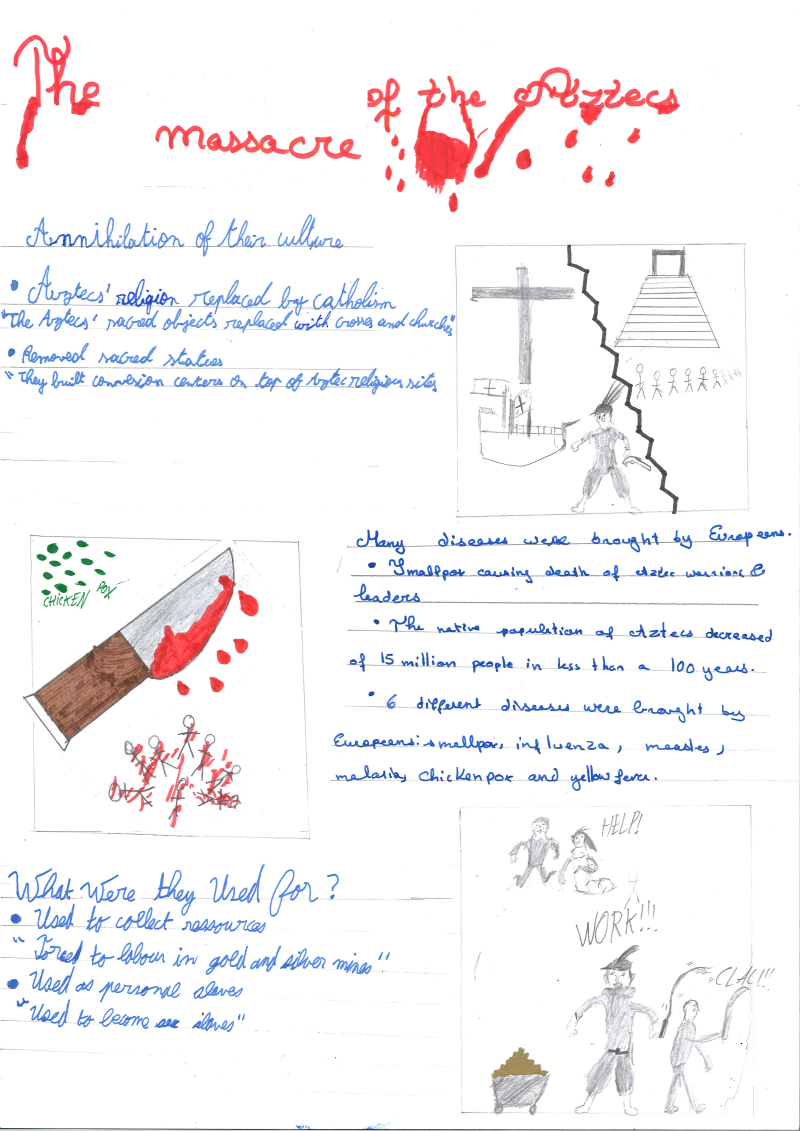 The massacre of the Aztecs
Annihilation of their culture
• Aztecs' religion replaced by catholism
"The Aztecs' sacred objects replaced with crosses and churches"
• Removed sacred statues
"They built conversion centers on top of Aztec religious sites
Many diseases were brought by Europeens.
• Smallpox causing death of Aztec warriors &
leaders
• The native population of Aztecs decreased
of 15 million people in less than a 100 years.
• 6 different diseases were brought by
Europeens: smallpox, influenza, measles,
malaria, chickenpox and yellow fever.
CHICKEN POX
What Were they Used for?
• Used to collect ressources
"Forced to labour in gold and silver mines"
• Used as personal slaves
"Used to become slaves"
HELP!
WORK!!!
CLAC!!!